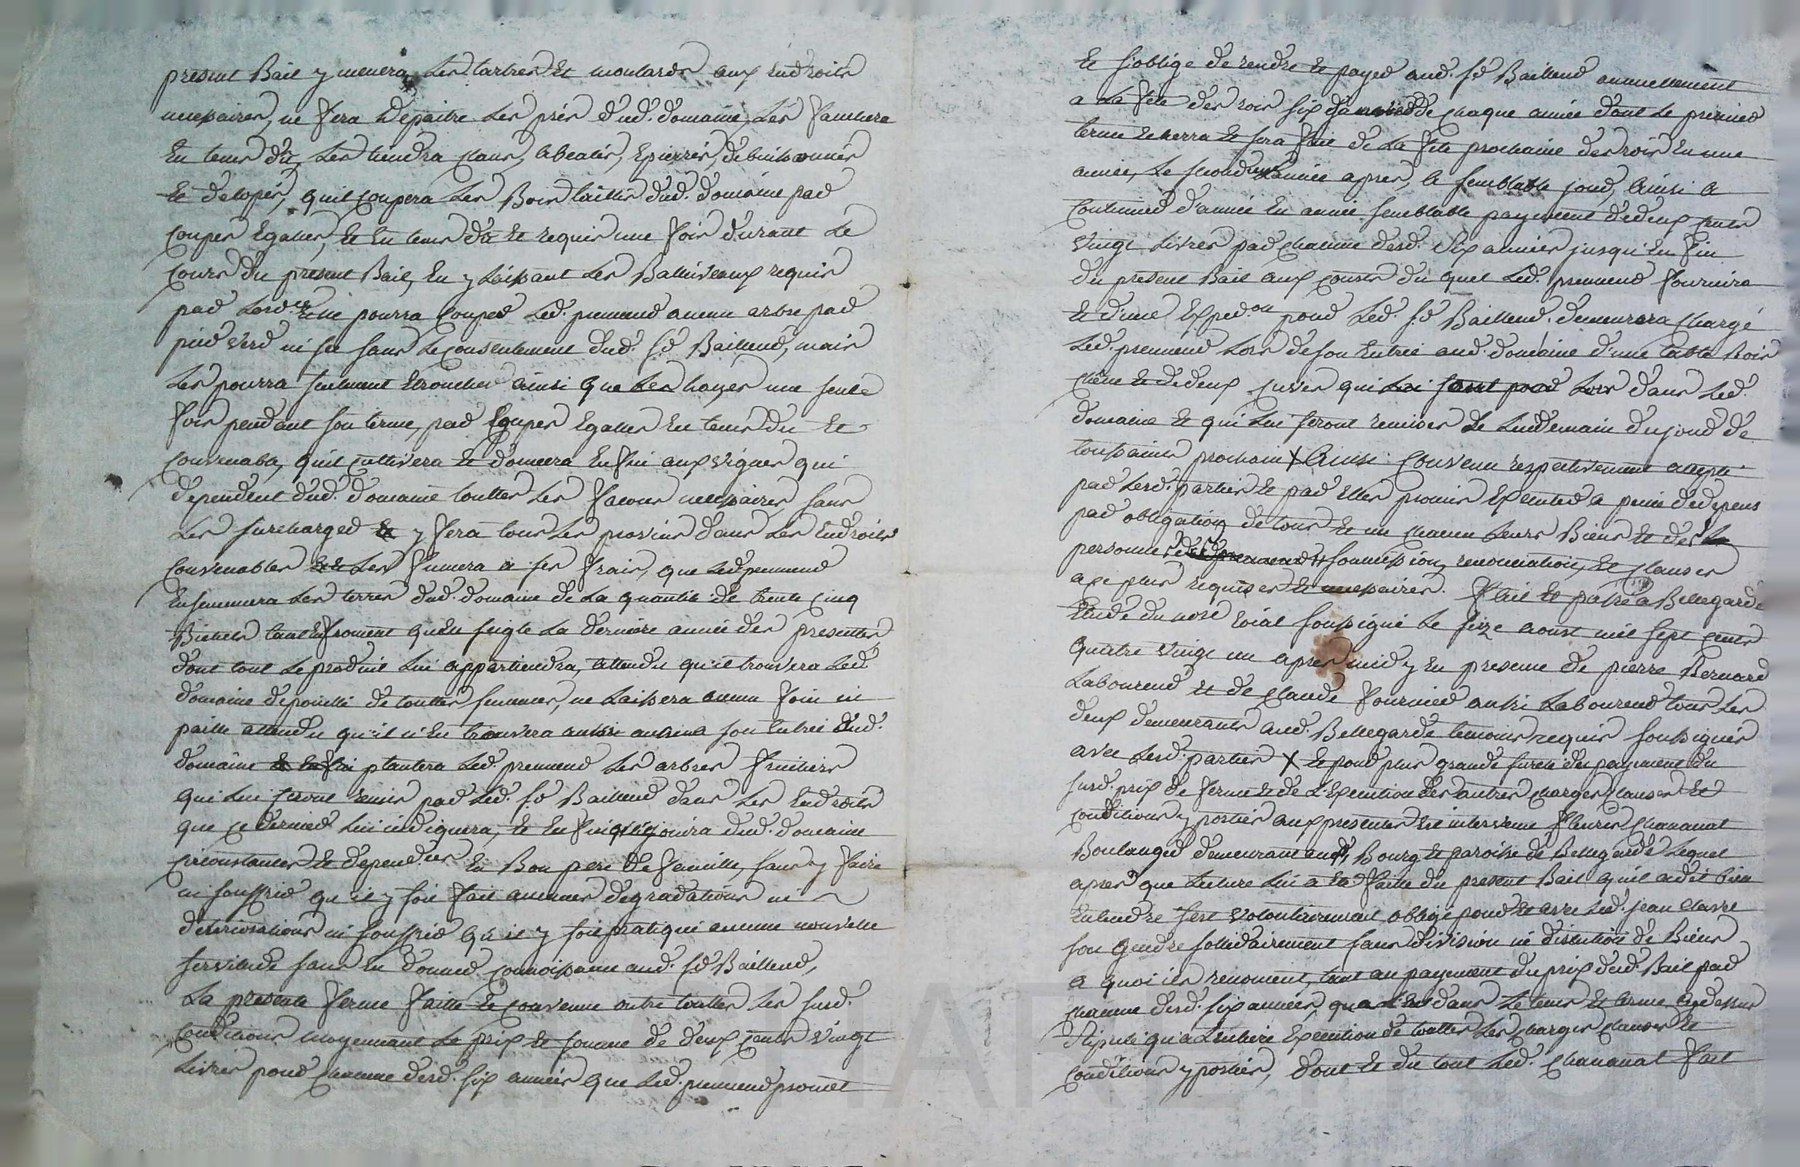 present Bail y menera les tartres et moutards aux Endroits
necessaires, ne fera depaitre les prés dud. domaine, les fauchera
En tems dû, les tiendra claus, Epierrés, debuissonnés
Et detopés, quil coupera les Bois taillis dud. domaine par
Coupes Egales, Et En tems dû Et requis une fois durant le
Cours du present Bail, En y laissant les Balliveaux requis
par lord.ce Et ne pourra couper led. preneur aucun arbre par
pied verd ni sec sans le consentement dud. Sr. Bailleur, mais
les pourra seulement Etroncher ainsi que les hayes une seule
fois pendant son terme, par Coupes Egales En tems du Et
Convenable, quil cultivera Et donnera Enfin aux vignes qui
dependent dud. domaine touttes les facons necessaires sans
les surcharger y fera tous les provins dans les Endroits
Convenables les fumera a ses frais, que led. preneur
Ensemencera les terres dud. domaine de la quantité de trente cinq
Bichets tant froment quEn seigle la derniere année des presentes
dont tout le produit lui appartiendra, attendu qu'il trouvera led.
domaine depouillé de touttes semences, ne laissera aucun foin ni
paille attendu qu'il n'En trouvera aussi aucuns son Entrée dud.
domaine plantera led. preneur les arbres fruitiers
qui lui seront remis par led. Sr. Bailleur dans les Endroits
que ce dernier lui indiquera, Et Enfin quil jouira dud. domaine
Circonstances Et dependces. En Bon pere de famille, sans y faire
ni souffrir qu'il y soit fait aucunes degradations ni
deteriorations ni souffrir qu'il y soit pratiqué aucune nouvelle
servitude sans En donner connoissance aud. Sr. Bailleur,
La presente ferme faitte Et convenue outre touttes les susd.
Conditions moyennant le prix Et somme de deux Cents vingt
Livres pour chacune desd. six années que led. preneur promet
Et s'oblige de rendre Et payer aud. Sr. Bailleur annuellement
a la fête des rois six de chaque année dont le premier
terme Echerra Et sera fait de la fête prochaine des rois En une
année, le second année apres, a semblable jour, Ainsi a
Continuer d'année En année semblable payement de deux Cents
vingt Livres par chacune desd. six années jusqu'En fin
du present Bail aux cousts du quel led. preneur fournira
Et d'une Exped.on pour led. Sr. Bailleur. demeurera chargé
led. preneur lors de son Entrée aud. domaine d'une table Bois
chêne Et de deux cuves qui sont dans led.
domaine Et qui lui seront remises le Lendemain du jour de
toussaints prochain X Ainsi Convenu respectivement accepté
par lesd. parties Et par Elles promis Executer a peine de depens
par obligation de tous Et un chacun leurs Biens Et des
personne soumission, renonciation, Et clauses
a ce plus requises Et necessaires. Fait Et passé a Bellegarde
Etude du nore. roial soussigné le seize aoust mil sept cents
quatre vingt un apres midy En presence de pierre Bernard
laboureur Et de Claude fournier aussi laboureur tous les
deux demeurants aud. Bellegarde temoins requis soussignés
avec lesd. parties X Et pour plus grande sureté du payement du
susd. prix de ferme Et de l'Execution des autres charges clauses Et
Conditions y portées aux presentes Est intervenu fleury chavanat
Boulanger demeurant aud. Bourg Et paroisse de Bellegarde lequel
apres que lecture lui a Eté faitte du present Bail quil a dit bien
Entendre sest volontairement obligé pour Et avec led. jean
son gendre solidairement sans division ni discution de Biens
a quoi ils renoncent, tant au payement du prix dud. Bail par
chacune desd. six années dans le tems Et terme cy dessus
stipulé qu'a L'entiere Execution de touttes les charges clauses Et
Conditions y portées, dont Et du tout led. chavanat fait